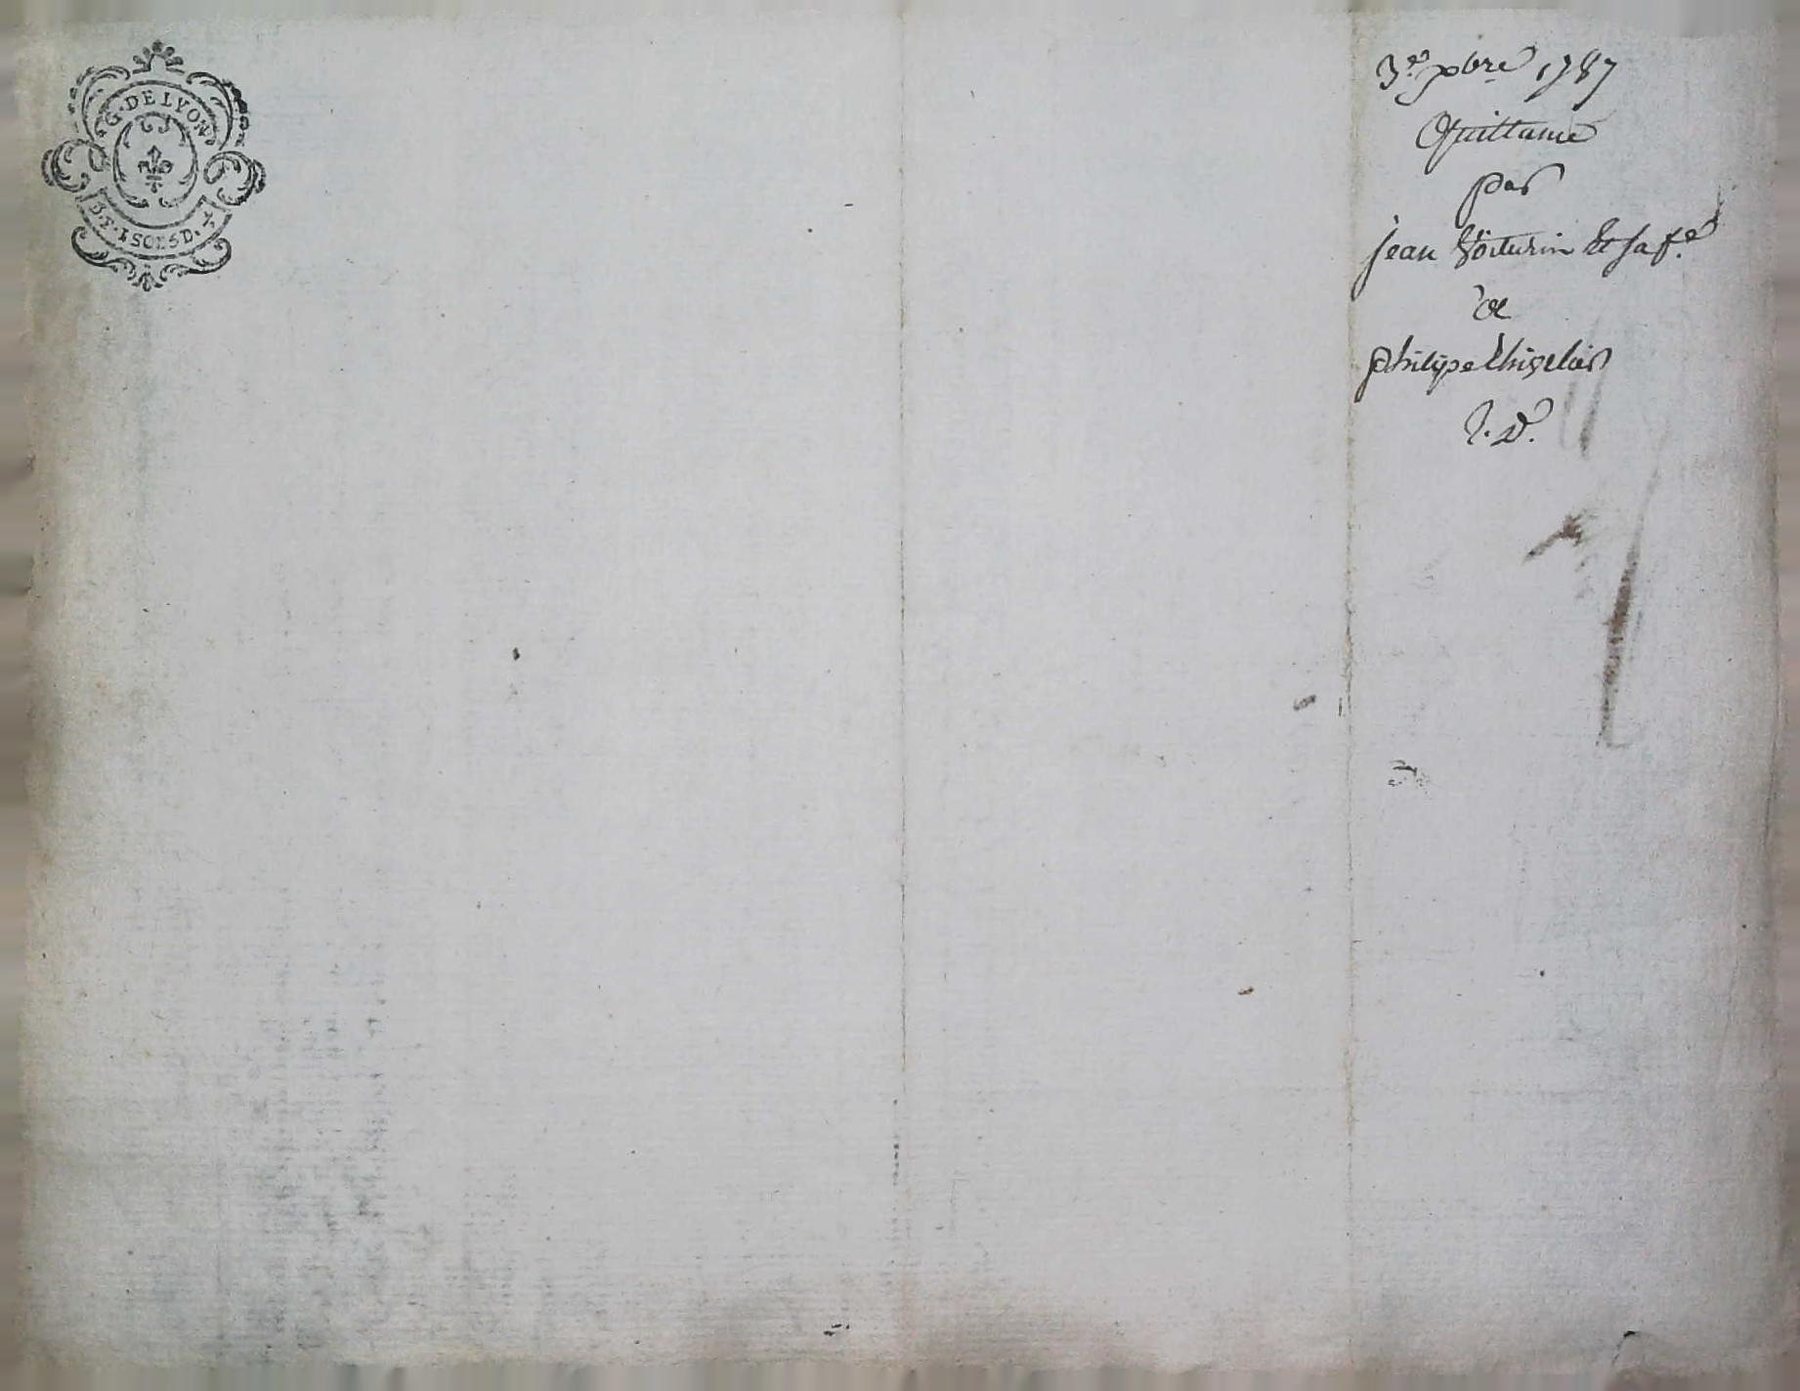 G. DE LYON
D. F. 1 SOL 5 D.
3e xbre 1787
Quittance
par
jean Voiturin Et sa fe
de
philipe
J. D.